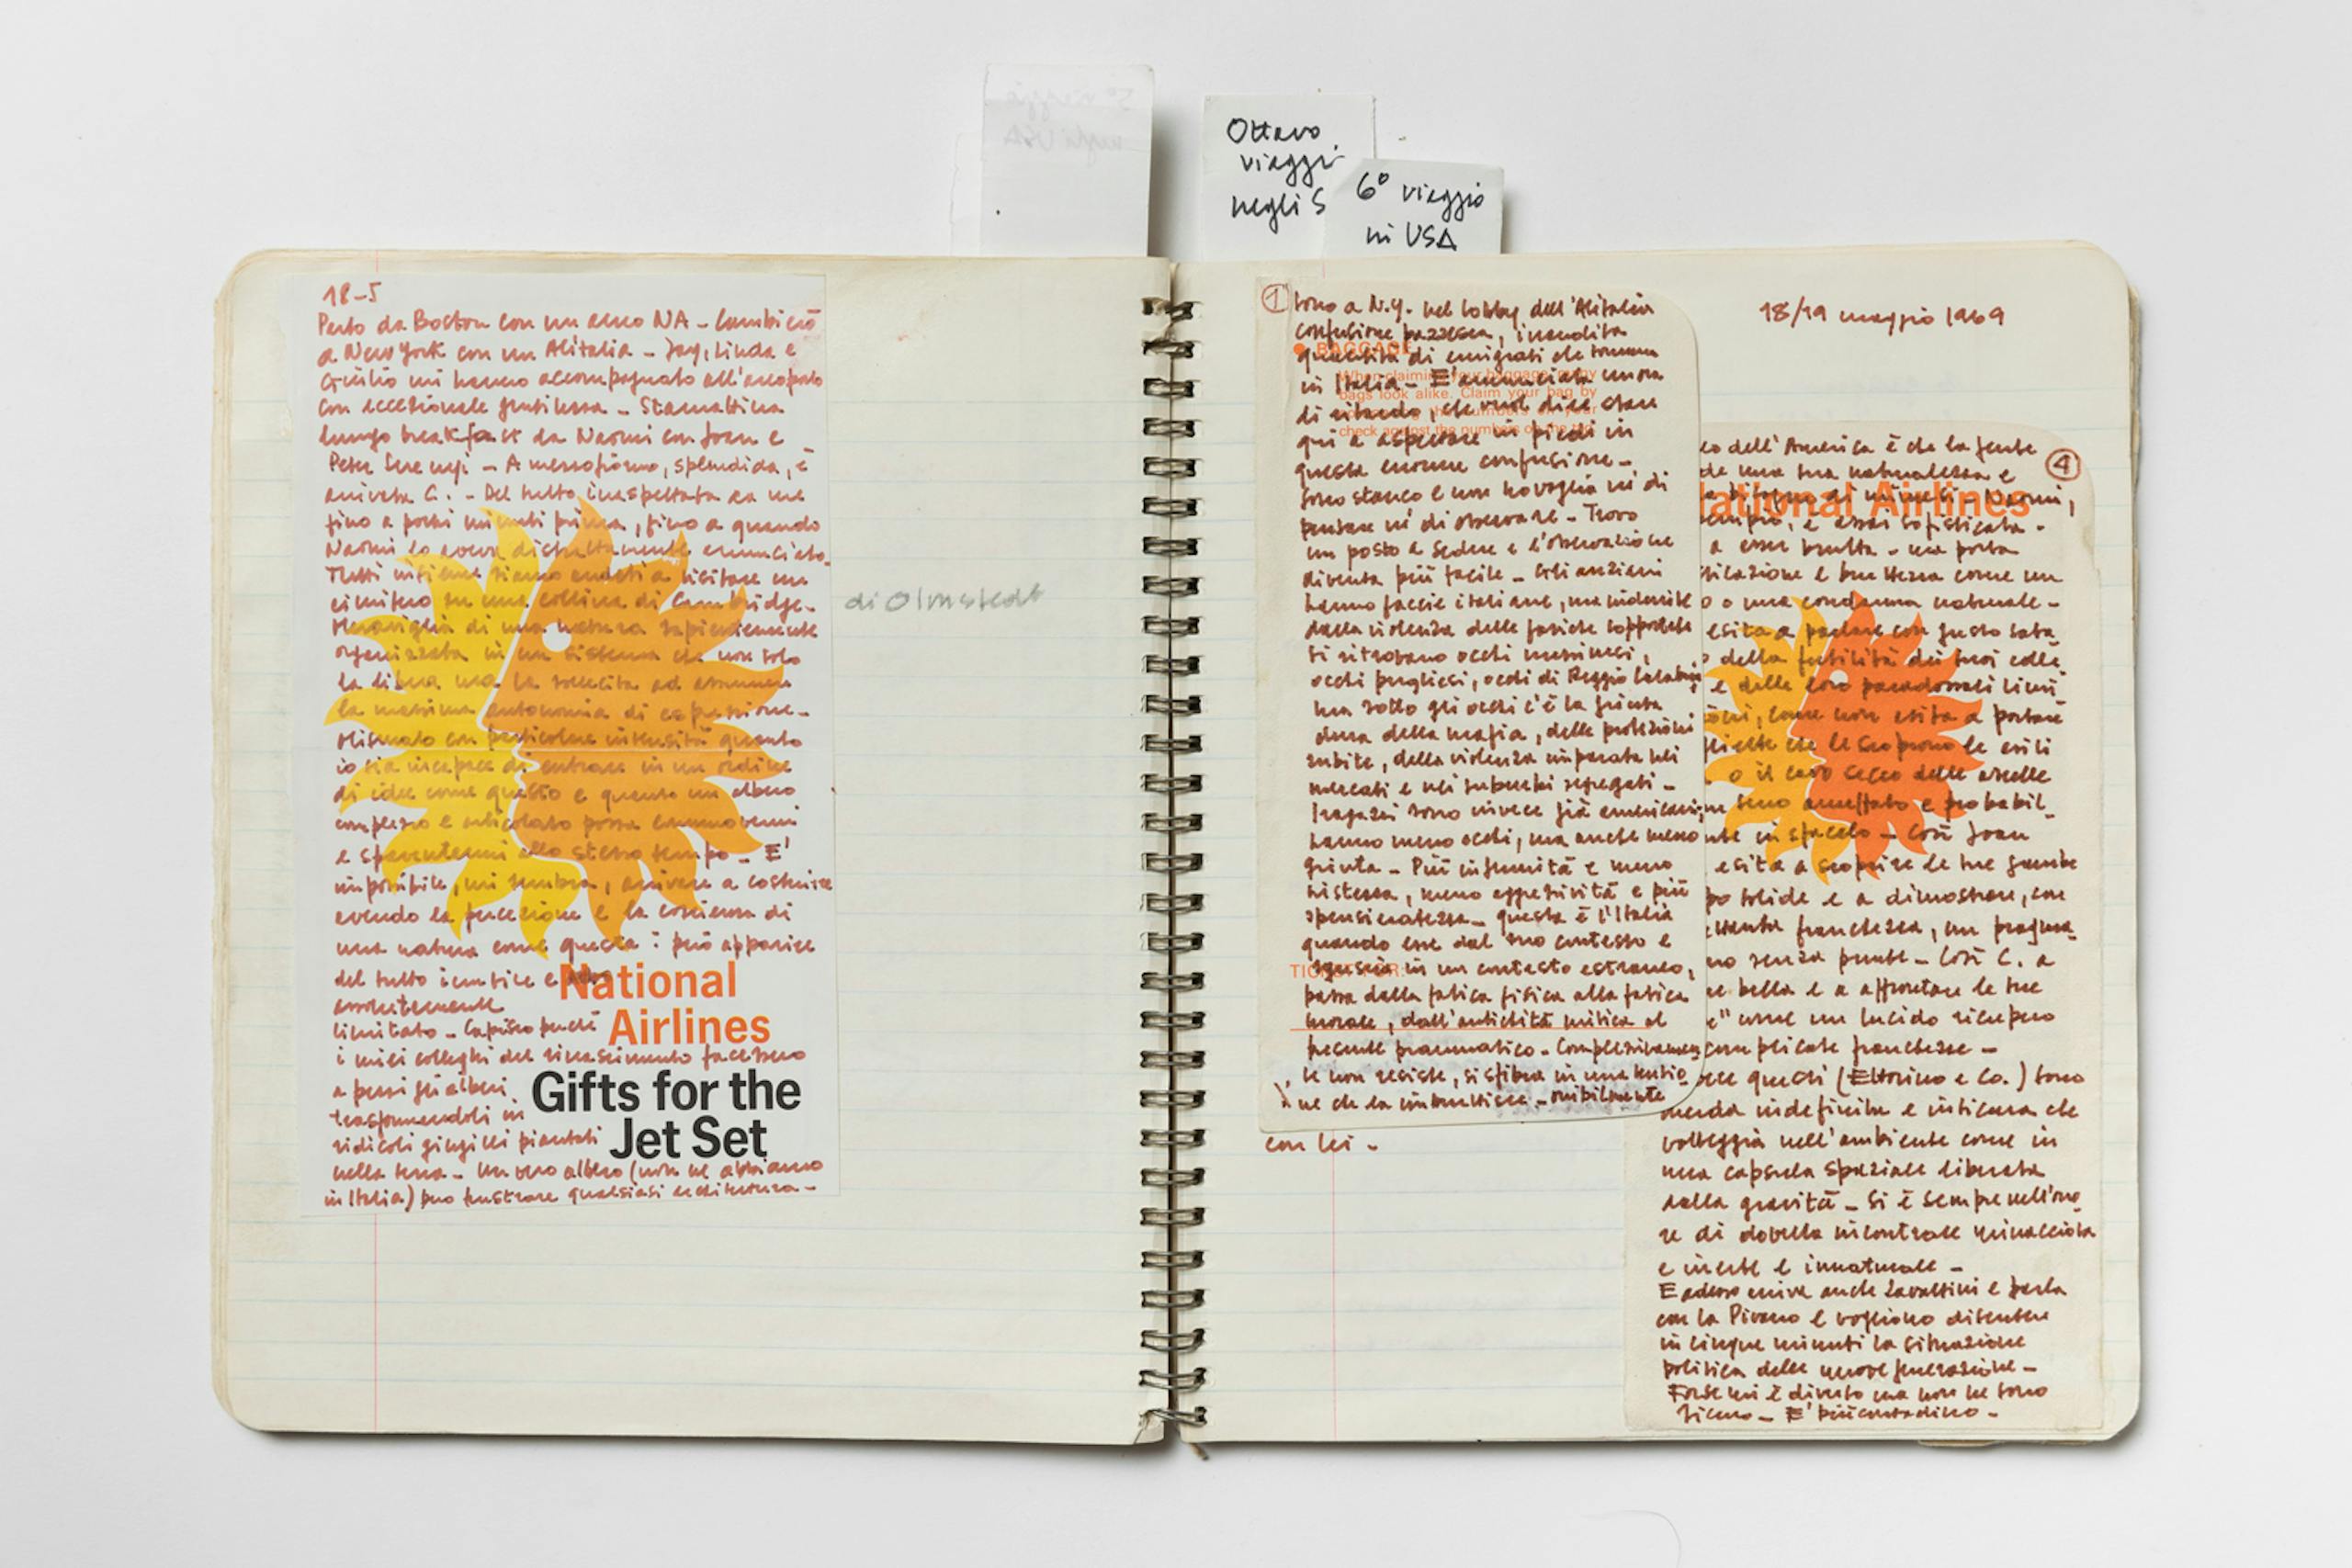 Ottavo
viaggi
negli S
6° viaggio
in USA
18-5
Parto da Boston con un aereo NA - Cambierò
a New York con un Alitalia - Jay, Linda e
Giulio mi hanno accompagnato all'aeroporto
con eccezionale gentilezza - Stamattina
lungo breakfast da Naomi con Joan e
Peter - A mezzogiorno, splendida, è
arrivata C. - Del tutto inaspettata da me
fino a pochi minuti prima, fino a quando
Naomi lo aveva distrattamente annunciato.
Tutti insieme siamo andati a visitare un
cimitero su una collina di Cambridge -
Meraviglia di una natura sapientemente
organizzata in un sistema che non solo
la libera ma la sollecita ad assumere
la massima autonomia di espressione -
con particolare intensità quanto
io sia incapace di entrare in un ordine
di idee come questo e quanto un albero
complesso e articolato possa commuovermi
e spaventarmi allo stesso tempo - E'
impossibile, mi sembra, arrivare a costruire
avendo la percezione e la coscienza di
una natura come questa: può apparire
del tutto inutile e
assolutamente
limitato - Capisco perché
i miei colleghi del rinascimento facessero
a pezzi gli alberi
trasformandoli in
ridicoli gingilli piantati
nella terra - Un vero albero (non ne abbiamo
in Italia) può frustrare qualsiasi architettura -
National
Airlines
Gifts for the
Jet Set
di Olmstedt
18/19 maggio 1969
1
Sono a N.Y. nel lobby dell'Alitalia
confusione pazzesca, inaudita
quantità di emigrati che tornano
in Italia - E' annunciata un'ora
di ritardo, che vuol dire stare
qui a aspettare in piedi in
questa enorme confusione -
Sono stanco e non ho voglia né di
pensare né di osservare - Trovo
un posto a sedere e l'osservazione
diventa più facile - Gli anziani
hanno faccie italiane, ma indurite
dalla violenza delle fatiche sopportate
si ritrovano occhi messinesi,
occhi pugliesi, occhi di Reggio Calabria
ma sotto gli occhi c'è la grinta
dura della mafia, delle protezioni
subite, della violenza imparata nei
mercati e nei suburbi segregati -
I ragazzi sono invece già americani,
hanno meno occhi, ma anche meno
grinta - Più infermità e meno
tristezza, meno aggressività e più
spensieratezza - questa è l'Italia
quando esce dal suo contesto e
in un contesto estraneo,
passa dalla fatica fisica alla fatica
morale, dall'antichità mitica al
presente prammatico -
se non resiste, si sfibra in una
ne che la
con lei -
BAGGAGE
When claiming your baggage, many
bags look alike. Claim your bag by
check against the numbers on
TICKET FOR:
4
National Airlines
dell'America è che la gente
de una sua naturalezza e
bisogno di - Naomi,
, è assai sofisticata -
a esser brutta - ma porta
e bruttezza come un
o una condanna naturale -
esita a parlare con gusto
della futilità dei suoi
e delle loro paradossali
, come non esita a portare
che le scoprono le
o il cavo secco delle ascelle
seno e probabil-
in sfacelo - Così Joan
esita a scoprire le sue gambe
solide e a dimostrare, con
franchezza, un pragma-
senza - Così C. a
bella e a affrontare le sue
come un lucido recupero
complicate franchezze -
questi (Ettorino e Co.) sono
merda indefinita e insicura che
volteggia nell'ambiente come in
una capsula spaziale liberata
dalla gravità - Si è sempre nell'orro-
re di doverla incontrare minacciosa
e inerte e innaturale -
E adesso arriva anche Zavattini e parla
con la Pivano e vogliono discutere
in cinque minuti la situazione
politica delle nuove generazione -
Forse mi è diverso ma non ne sono
sicuro - E' più contadino -